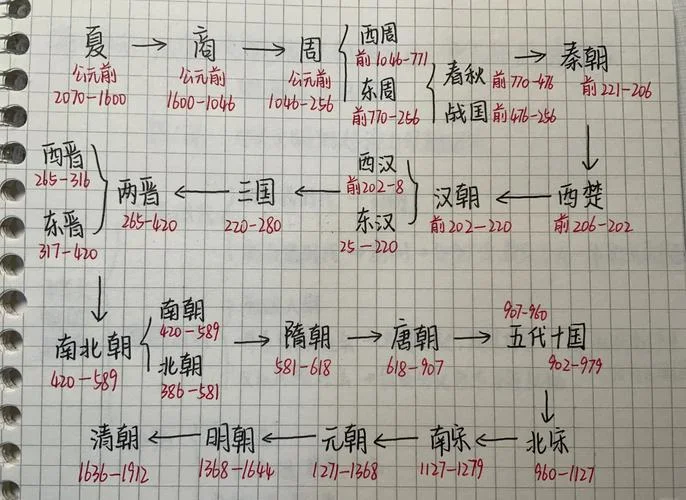 夏 → 商 → 周 { 西周
前1046-771
东周
前770-256 { 春秋 前770-476
战国 前476-256 → 秦朝
前221-206
公元前
2070-1600
公元前
1600-1046
公元前
1046-256
西楚
前206-202
汉朝
前202-220
西汉
前202-8
东汉
25-220
三国
220-280
两晋
265-420
西晋
265-316
东晋
317-420
南北朝
420-589
南朝
420-589
北朝
386-581
隋朝
581-618
唐朝
618-907
907-960
五代十国
902-979
北宋
960-1127
南宋
1127-1279
元朝
1271-1368
明朝
1368-1644
清朝
1636-1912